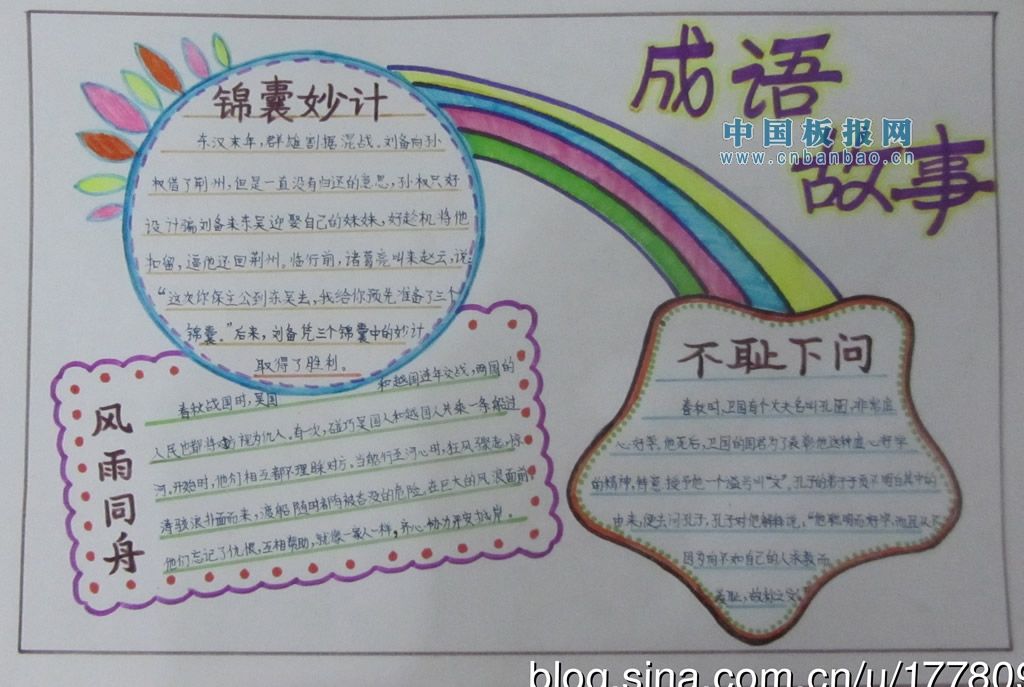 成语
故事
中国板报网
www.cnbanbao.cn
锦囊妙计
东汉末年,群雄割据混战,刘备向孙
权借了荆州,但是一直没有归还的意思,孙权只好
设计骗刘备来东吴迎娶自己的妹妹,好趁机将他
扣留,逼他还回荆州。临行前,诸葛亮叫来赵云,说:
“这次你保主公到东吴去,我给你预先准备了三个
锦囊。”后来,刘备凭三个锦囊中的妙计
取得了胜利。
风雨同舟
春秋战国时,吴国 和越国连年交战,两国的
人民也都将 视为仇人。有一次,碰巧吴国人和越国人共乘一条船过
河,开始时,他们相互都不理睬对方。当船行至河心时,狂风骤起,惊
涛骇浪扑面而来,渡船随时都有被吞没的危险。在巨大的风浪面前,
他们忘记了仇恨,互相帮助,就像一家人一样,齐心协力平安 岸。
不耻下问
春秋时,卫国有个大夫名叫孔圉,非常虚
心好学,他死后,卫国的国君为了表彰他这种虚心好学
的精神,特意授予他一个谥号叫“文”。孔子的弟子子贡不明白其中的
由来,便去问孔子,孔子对他解释说:“他聪明而好学,而且从不
因多向不如自己的人求教而
羞耻,故
blog.sina.com.cn/u/177809